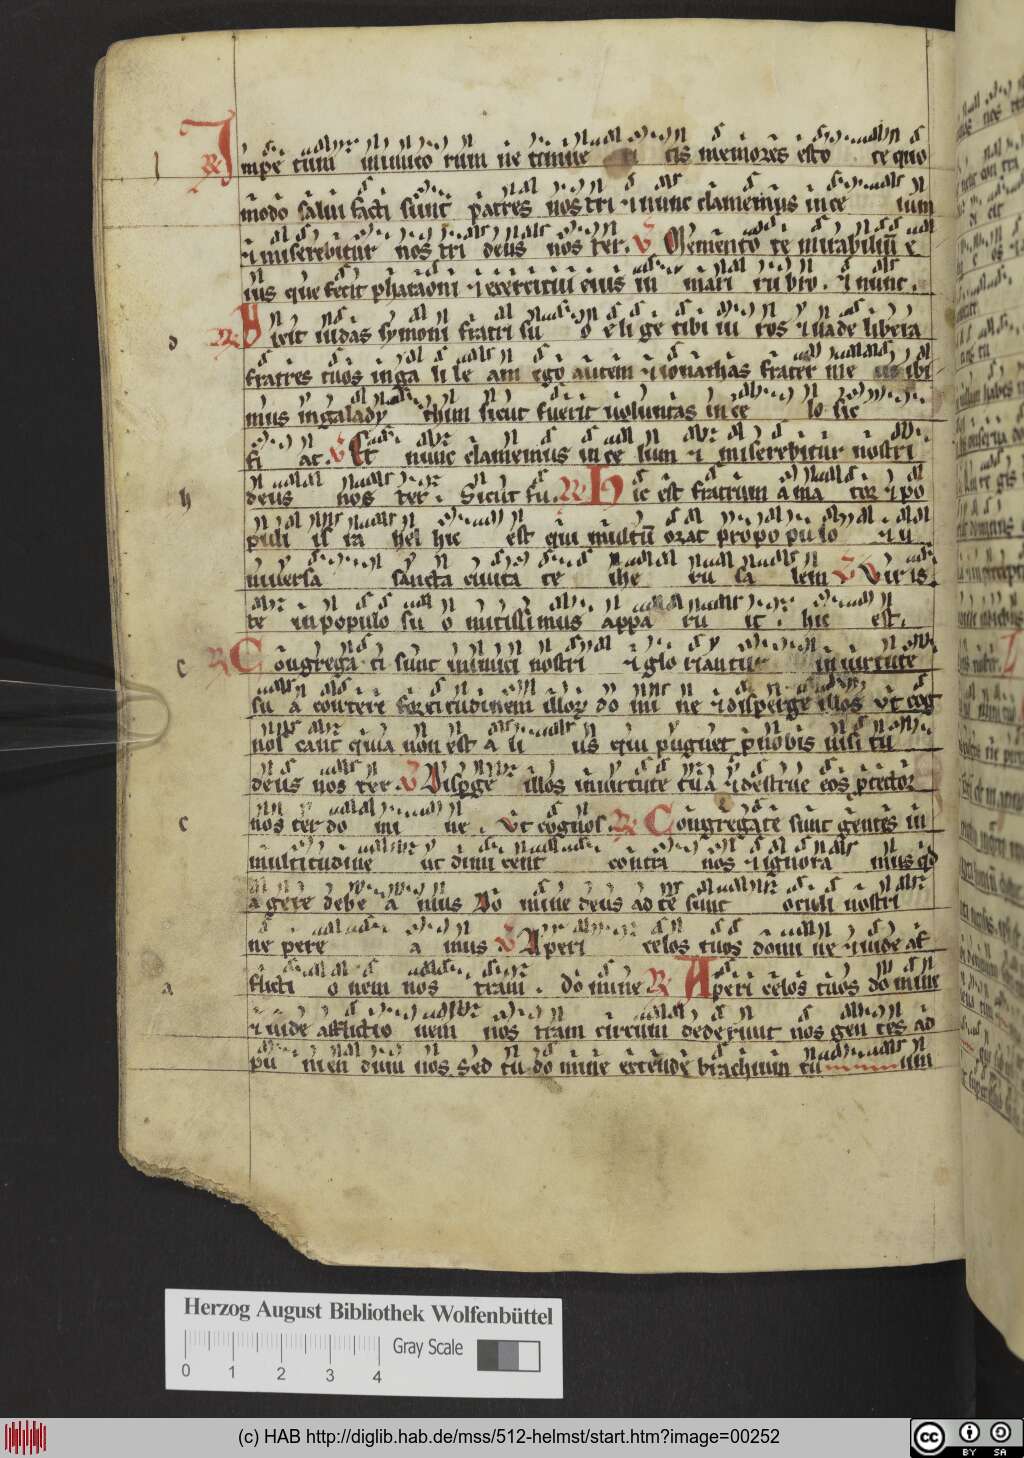 l ℟ Impe tum inimico rum ne timue ri tis memores esto te quo
modo salui facti sunt patres nos tri ⁊ nunc clamemus in ce lum
⁊ miserebitur nos tri deus nos ter. ℣ Memento te mirabiliū e
ius que fecit pharaoni ⁊ exercitui eius in mari ru bro. ⁊ nunc.
d ℟ Dixit iudas symoni fratri su o e li ge tibi ui ros ⁊ uade libera
fratres tuos in ga li le am ego autem ⁊ ionathas frater me us ibi
mus in galady thim sicut fuerit uoluntas in ce lo sic
fi at. ℣ Et nunc clamemus in ce lum ⁊ miserebitur nostri
h deus nos ter. Sicut fu. ℟ Hic est fratrum ama tor ⁊ po
puli is ra hel hic est qui multū orat pro po pu lo ⁊ u
niuersa sancta ciuita te ihe ru sa lem ℣ Vir is
te in populo su o mitissimus appa ru it. hic est.
c ℟ Congrega ti sunt inimici nostri ⁊ glo riantur in uirtute
su a contere fortitudinem illorum do mi ne ⁊ disperge illos ut cog
nos cant quia non est a li us qui pugnet p nobis nisi tu
deus nos ter. ℣ Disperge illos in uirtute tua ⁊ destrue eos ptector
c nos ter do mi ne. ut cognos. ℟ Congregate sunt gentes in
multitudine ut dimi cent contra nos ⁊ ignora mus qd
agere debe a mus Do mine deus ad te sunt oculi nostri
ne pere a mus ℣ Aperi celos tuos domi ne ⁊ uide af
a flicti o nem nos tram. do mine ℟ Aperi celos tuos do mine
⁊ uide afflictio nem nos tram circum dederunt nos gen tes ad
pu nien dum nos sed tu do mine extende brachium tu um
Herzog August Bibliothek Wolfenbüttel
Gray Scale
0 1 2 3 4
(c) HAB http://diglib.hab.de/mss/512-helmst/start.htm?image=00252
cc BY SA